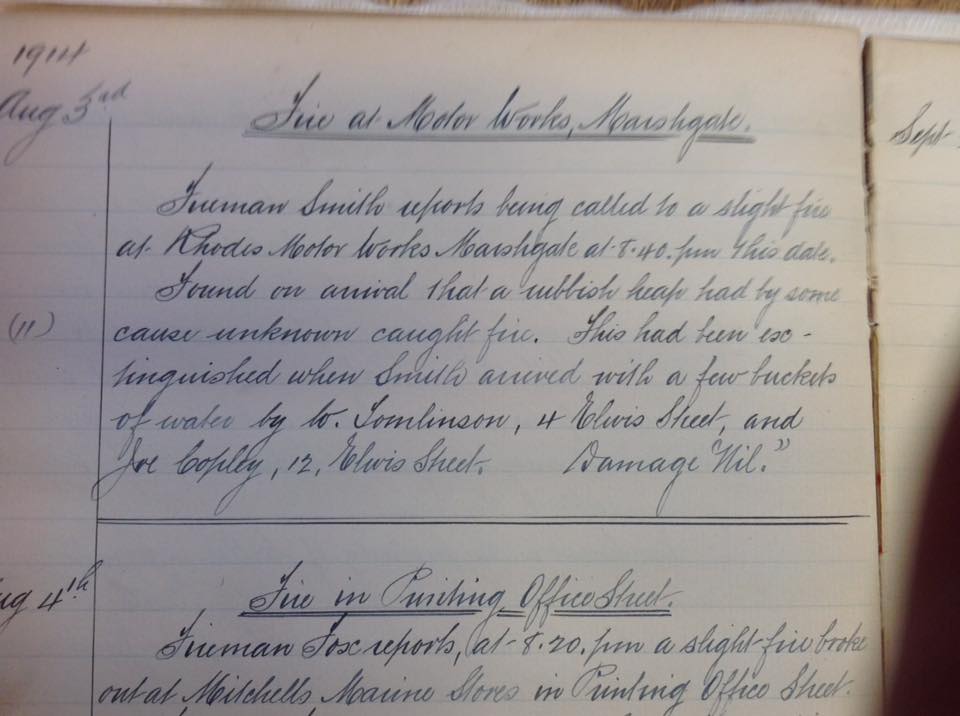 1914
Aug 3rd
Fire at Motor Works, Marshgate.
Fireman Smith reports being called to a slight fire
at Rhodes Motor Works Marshgate at 8.40. pm this date.
Found on arrival that a rubbish heap had by some
(11)
cause unknown caught fire. This had been ex-
tinguished when Smith arrived with a few buckets
of water by W. Tomlinson, 4 Elwis Street, and
Joe Copley, 12, Elwis Street. Damage "Nil."
Aug 4th
Fire in Printing Office Street.
Fireman Fox reports, at 8.20. pm a slight fire broke
out at Mitchells Marine Stores in Printing Office Street.
Sept